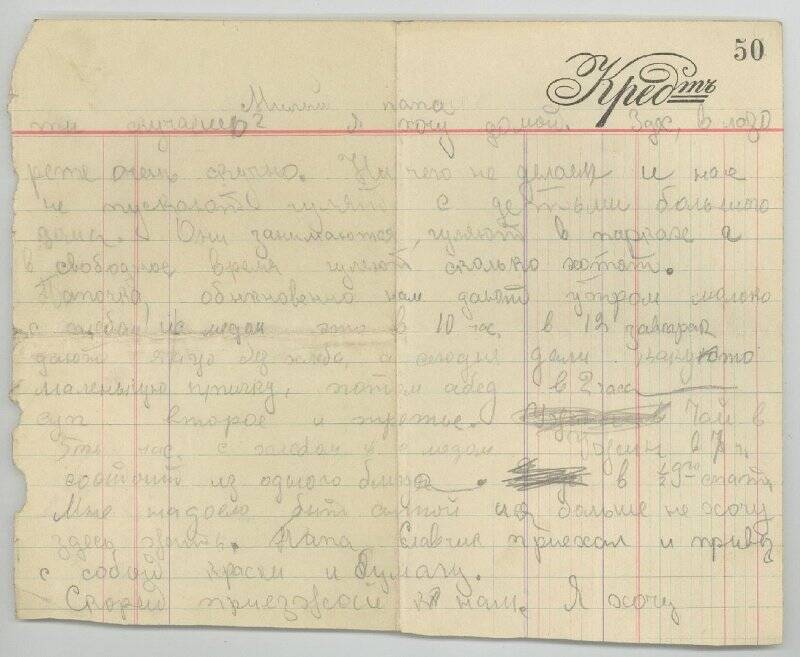 50
Кредтъ
Милый папа
ты скучаешь? Я хочу домой. Здсь, в лаза
рете очень скучно. Ничего не делаем и нас
не пускают гулять с детьми большого
дома. Они занимаются, гуляют в парке а
в свободное время гуляют сколько хотят.
Папочка, обыкновенно нам дают утром молоко
с хлебом и с медом это в 10 час. в 12 завтрак
дают яйцо без хлеба, а сегодня дали какуюто
маленькую птичку, потом обед в 2 часа
суп второе и третье. Чай в
5ть час. с хлебом и с медом Ужин в 7 ч.
состоит из одного блюда. в ½ 9го спать
Мне надоело быть одной и я больше не хочу
здесь жить. Папа Славчик приехал и привез
с собой краски и бумагу.
Скорей приезжай к нам. Я хочу